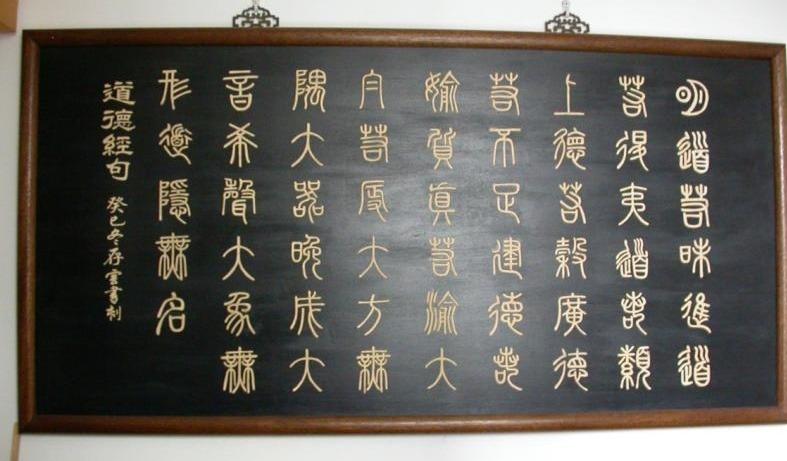 明道若昧進道
若退夷道若纇
上德若穀廣德
若不足建德若
媮質真若渝大
白若辱大方無
隅大器晚成大
音希聲大象無
形道隱無名
道德經句
癸巳冬存雲書刻